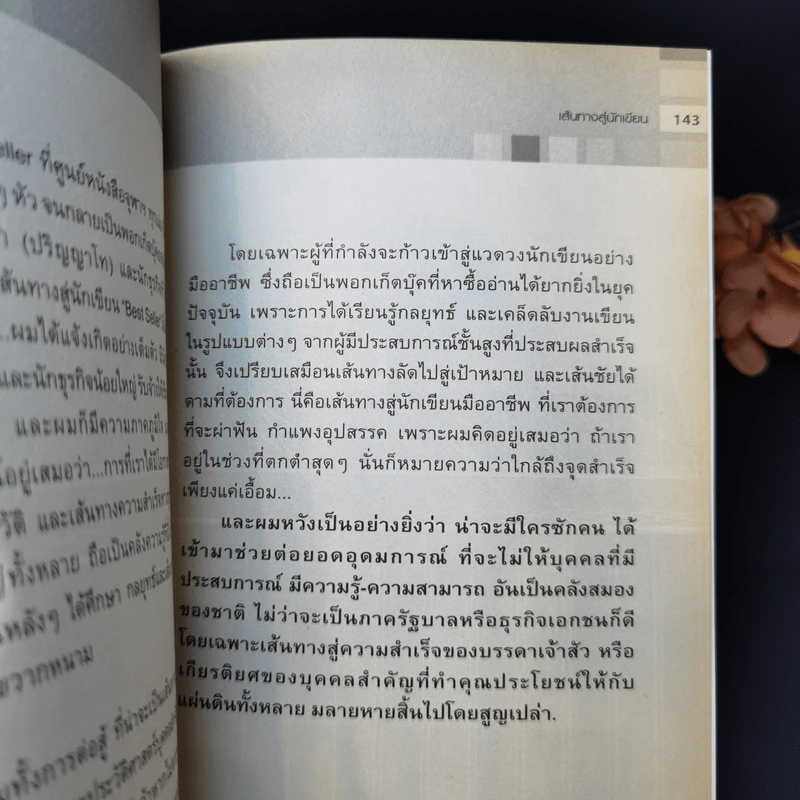 eller ที่ศูนย์หนังสือจุฬาฯ
หัว จนกลายเป็นพอกเก็ต
(ปริญญาโท) และนักธุรกิจ
เส้นทางสู่นักเขียน "Best Seller
...ผมได้แจ้งเกิดอย่างเต็มตัว
และนักธุรกิจน้อยใหญ่
และผมก็มีความภาคภูมิใจ
อยู่เสมอว่า...การที่เราได้
และเส้นทางความสำเร็จ
ทั้งหลาย ถือเป็นคลังความรู้
หลังๆ ได้ศึกษา กลยุทธ์และ
ขวากหนาม
ทั้งการต่อสู้ ที่น่าจะเป็น
ประวัติศาสตร์
เส้นทางสู่นักเขียน 143
โดยเฉพาะผู้ที่กำลังจะก้าวเข้าสู่แวดวงนักเขียนอย่าง
มืออาชีพ ซึ่งถือเป็นพอกเก็ตบุ๊คที่หาซื้ออ่านได้ยากยิ่งในยุค
ปัจจุบัน เพราะการได้เรียนรู้กลยุทธ์ และเคล็ดลับงานเขียน
ในรูปแบบต่างๆ จากผู้มีประสบการณ์ชั้นสูงที่ประสบผลสำเร็จ
นั้น จึงเปรียบเสมือนเส้นทางลัดไปสู่เป้าหมาย และเส้นชัยได้
ตามที่ต้องการ นี่คือเส้นทางสู่นักเขียนมืออาชีพ ที่เราต้องการ
ที่จะผ่าฟัน กำแพงอุปสรรค เพราะผมคิดอยู่เสมอว่า ถ้าเรา
อยู่ในช่วงที่ตกต่ำสุดๆ นั่นก็หมายความว่าใกล้ถึงจุดสำเร็จ
เพียงแค่เอื้อม...
และผมหวังเป็นอย่างยิ่งว่า น่าจะมีใครซักคน ได้
เข้ามาช่วยต่อยอดอุดมการณ์ ที่จะไม่ให้บุคคลที่มี
ประสบการณ์ มีความรู้-ความสามารถ อันเป็นคลังสมอง
ของชาติ ไม่ว่าจะเป็นภาครัฐบาลหรือธุรกิจเอกชนก็ดี
โดยเฉพาะเส้นทางสู่ความสำเร็จของบรรดาเจ้าสัว หรือ
เกียรติยศของบุคคลสำคัญที่ทำคุณประโยชน์ให้กับ
แผ่นดินทั้งหลาย มลายหายสิ้นไปโดยสูญเปล่า.